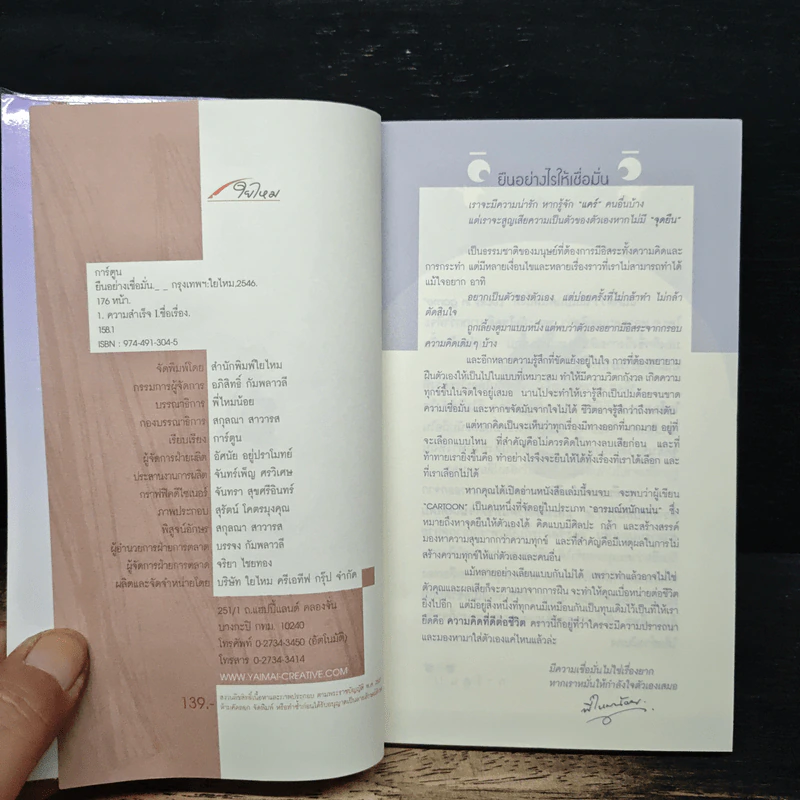 ใยไหม
การ์ตูน
ยืนอย่างเชื่อมั่น._ _ กรุงเทพฯ:ใยไหม,2546.
176 หน้า.
1. ความสำเร็จ I.ชื่อเรื่อง.
158.1
ISBN : 974-491-304-5
จัดพิมพ์โดย สำนักพิมพ์ใยไหม
กรรมการผู้จัดการ อภิสิทธิ์ กัมพลาวลี
บรรณาธิการ พี่ใหม่น้อย
กองบรรณาธิการ สกุลณา สาวารส
เรียบเรียง การ์ตูน
ผู้จัดการฝ่ายผลิต อัศนัย อยู่ปราโมทย์
ประสานงานการผลิต จันทร์เพ็ญ ศรวิเศษ
กราฟฟิคดีไซเนอร์ จันทรา สุขศรีอินทร์
ภาพประกอบ สุรัตน์ โคตรมุงคุณ
พิสูจน์อักษร สกุลณา สาวารส
ผู้อำนวยการฝ่ายการตลาด บรรจง กัมพลาวลี
ผู้จัดการฝ่ายการตลาด จริยา ไชยทอง
ผลิตและจัดจำหน่ายโดย บริษัท ใยไหม ครีเอทีฟ กรุ๊ป จำกัด
251/1 ถ.แฮปปี้แลนด์ คลองจั่น
บางกะปิ กทม. 10240
โทรศัพท์ 0-2734-3450 (อัตโนมัติ)
โทรสาร 0-2734-3414
WWW.YAIMAI-CREATIVE.COM
139.-
สงวนลิขสิทธิ์เนื้อหาและภาพประกอบ ตามพระราชบัญญัติ พ.ศ.
ห้ามคัดลอก จัดพิมพ์ หรือทำซ้ำก่อนได้รับอนุญาต
ยืนอย่างไรให้เชื่อมั่น
เราจะมีความน่ารัก หากรู้จัก "แคร์" คนอื่นบ้าง
แต่เราจะสูญเสียความเป็นตัวของตัวเองหากไม่มี "จุดยืน"
เป็นธรรมชาติของมนุษย์ที่ต้องการมีอิสระทั้งความคิดและ
การกระทำ แต่มีหลายเงื่อนไขและหลายเรื่องราวที่เราไม่สามารถทำได้
แม้ใจอยาก อาทิ
อยากเป็นตัวของตัวเอง แต่บ่อยครั้งที่ไม่กล้าทำ ไม่กล้า
ตัดสินใจ
ถูกเลี้ยงดูมาแบบหนึ่งแต่พบว่าตัวเองอยากมีอิสระจากกรอบ
ความคิดเดิมๆ บ้าง
และอีกหลายความรู้สึกที่ขัดแย้งอยู่ในใจ การที่ต้องพยายาม
ฝืนตัวเองให้เป็นไปในแบบที่เหมาะสม ทำให้มีความวิตกกังวล เกิดความ
ทุกข์ขึ้นในจิตใจอยู่เสมอ นานไปจะทำให้เรารู้สึกเป็นปมด้อยจนขาด
ความเชื่อมั่น และหากขจัดมันจากใจไม่ได้ ชีวิตอาจรู้สึกว่าถึงทางตัน
แต่หากคิดเป็นจะเห็นว่าทุกเรื่องมีทางออกที่มากมาย อยู่ที่
จะเลือกแบบไหน ที่สำคัญคือไม่ควรคิดในทางลบเสียก่อน และที่
ท้าทายเรายิ่งขึ้นคือ ทำอย่างไรจึงจะยืนให้ได้ทั้งเรื่องที่เราได้เลือก และ
ที่เราเลือกไม่ได้
หากคุณได้เปิดอ่านหนังสือเล่มนี้จนจบ จะพบว่าผู้เขียน
"CARTOON" เป็นคนหนึ่งที่จัดอยู่ในประเภท "อารมณ์หนักแน่น" ซึ่ง
หมายถึงหาจุดยืนให้ตัวเองได้ คิดแบบมีศิลปะ กล้า และสร้างสรรค์
มองหาความสุขมากกว่าความทุกข์ และที่สำคัญคือมีเหตุผลในการไม่
สร้างความทุกข์ให้แก่ตัวเองและคนอื่น
แม้หลายอย่างเลียนแบบกันไม่ได้ เพราะทำแล้วอาจไม่ใช่
ตัวคุณและผลเสียก็จะตามมาจากการฝืน จะทำให้คุณเบื่อหน่ายต่อชีวิต
ยิ่งไปอีก แต่มีอยู่สิ่งหนึ่งที่ทุกคนมีเหมือนกันเป็นทุนเดิมไว้เป็นที่ให้เรา
ยึดคือ ความคิดที่ดีต่อชีวิต คราวนี้ก็อยู่ที่ว่าใครจะมีความปรารถนา
และมองหามาใส่ตัวเองแค่ไหนแล้วล่ะ
มีความเชื่อมั่นไม่ใช่เรื่องยาก
หากเราหมั่นให้กำลังใจตัวเองเสมอ